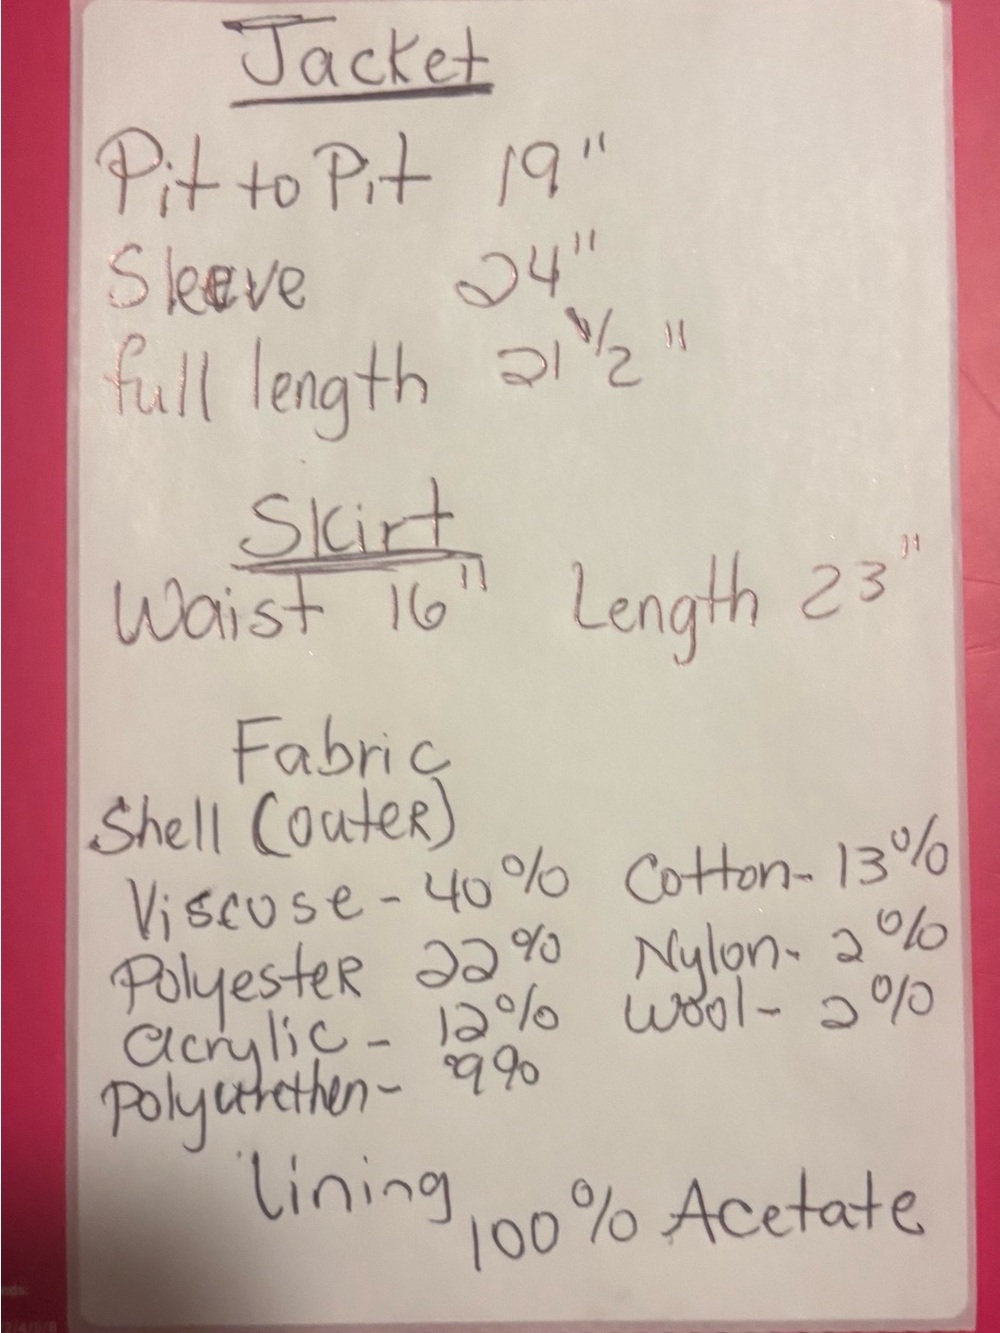 Jacket
Pit to Pit 19"
Sleeve 24"
full length 21 1/2 "
Skirt
Waist 16" Length 23"
Fabric
Shell (outer)
Viscose - 40% Cotton - 13%
Polyester 22% Nylon - 2%
acrylic - 12% Wool - 2%
Polyurethen - 9%
lining 100% Acetate